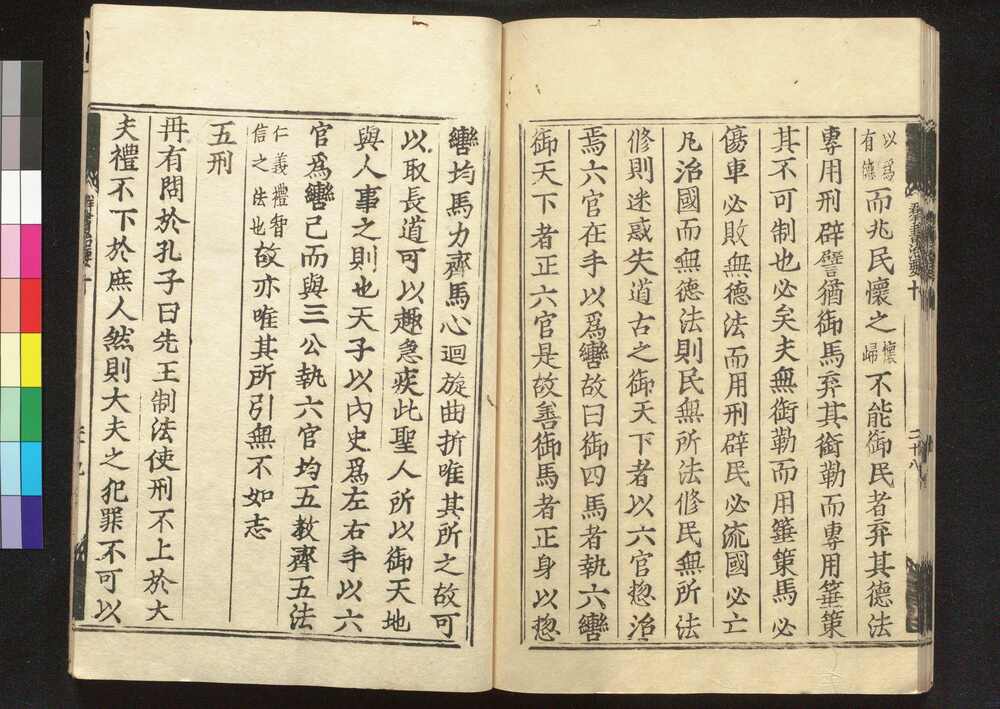 羣書治要十
三十八
以爲有懷而兆民懷之懷歸不能御民者弃其德法
專用刑辟譬猶御馬弃其銜勒而專用箠策
其不可制也必矣夫無銜勒而用箠策馬必
傷車必敗無德法而用刑辟民必流國必亡
凡治國而無德法則民無所法修民無所法
修則迷惑失道古之御天下者以六官惣治
焉六官在手以爲轡故曰御四馬者執六轡
御天下者正六官是故善御馬者正身以惣
轡均馬力齊馬心迴旋曲折唯其所之故可
以取長道可以趣急疾此聖人所以御天地
與人事之則也天子以內史爲左右手以六
官爲轡己而與三公執六官均五教齊五法
仁義禮智信之法也故亦唯其所引無不如志
五刑
冉有問於孔子曰先王制法使刑不上於大
夫禮不下於庶人然則大夫之犯罪不可以